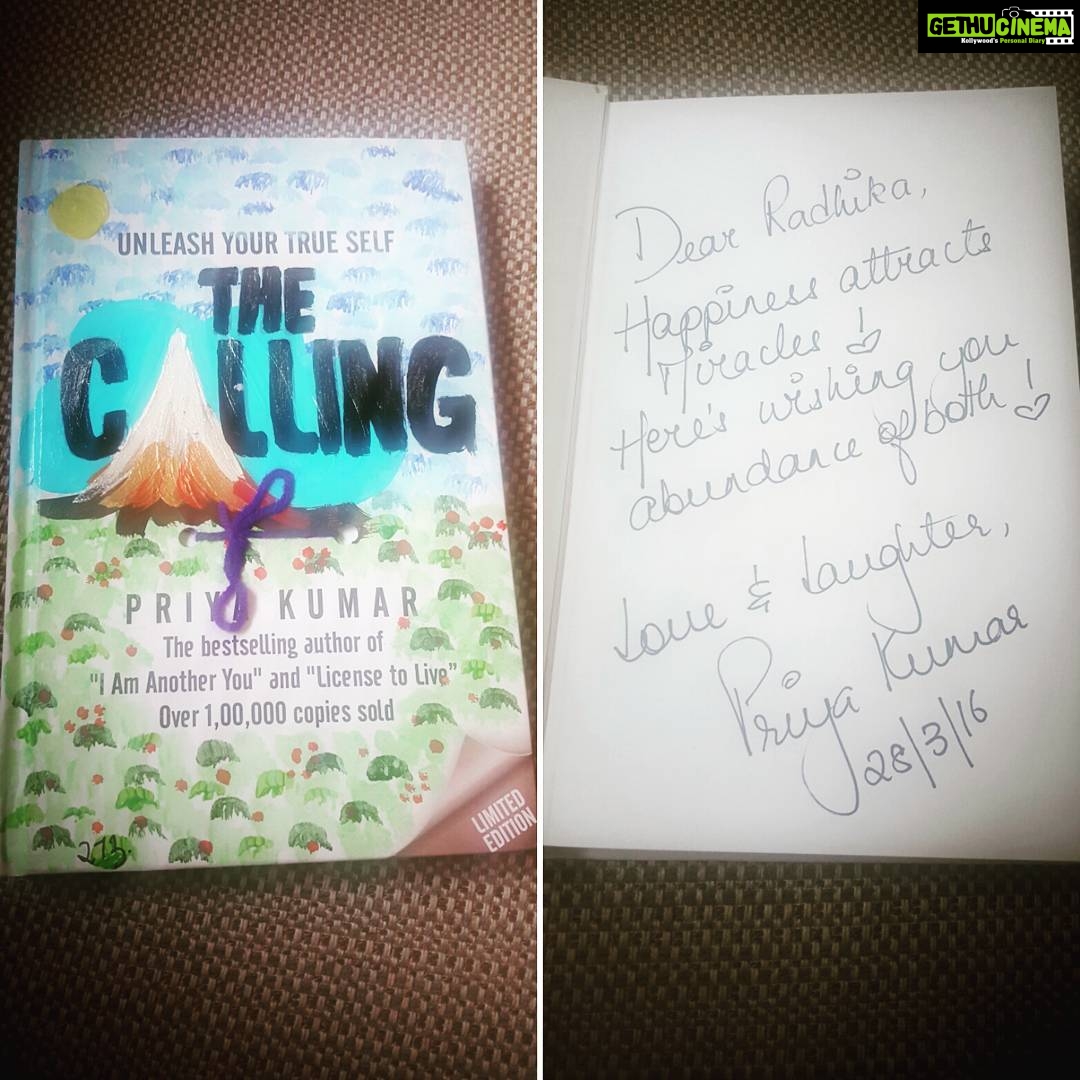 UNLEASH YOUR TRUE SELF
THE
CALLING
PRIYA KUMAR
The bestselling author of
"I Am Another You" and "License to Live"
Over 1,00,000 copies sold
LIMITED
EDITION
273
GETHUCINEMA
Kollywood's Personal Diary
Dear Radhika,
Happiness attracts
Miracles!
Here's wishing you
abundance of both!
Love & Laughter,
Priya Kumar
28/3/16